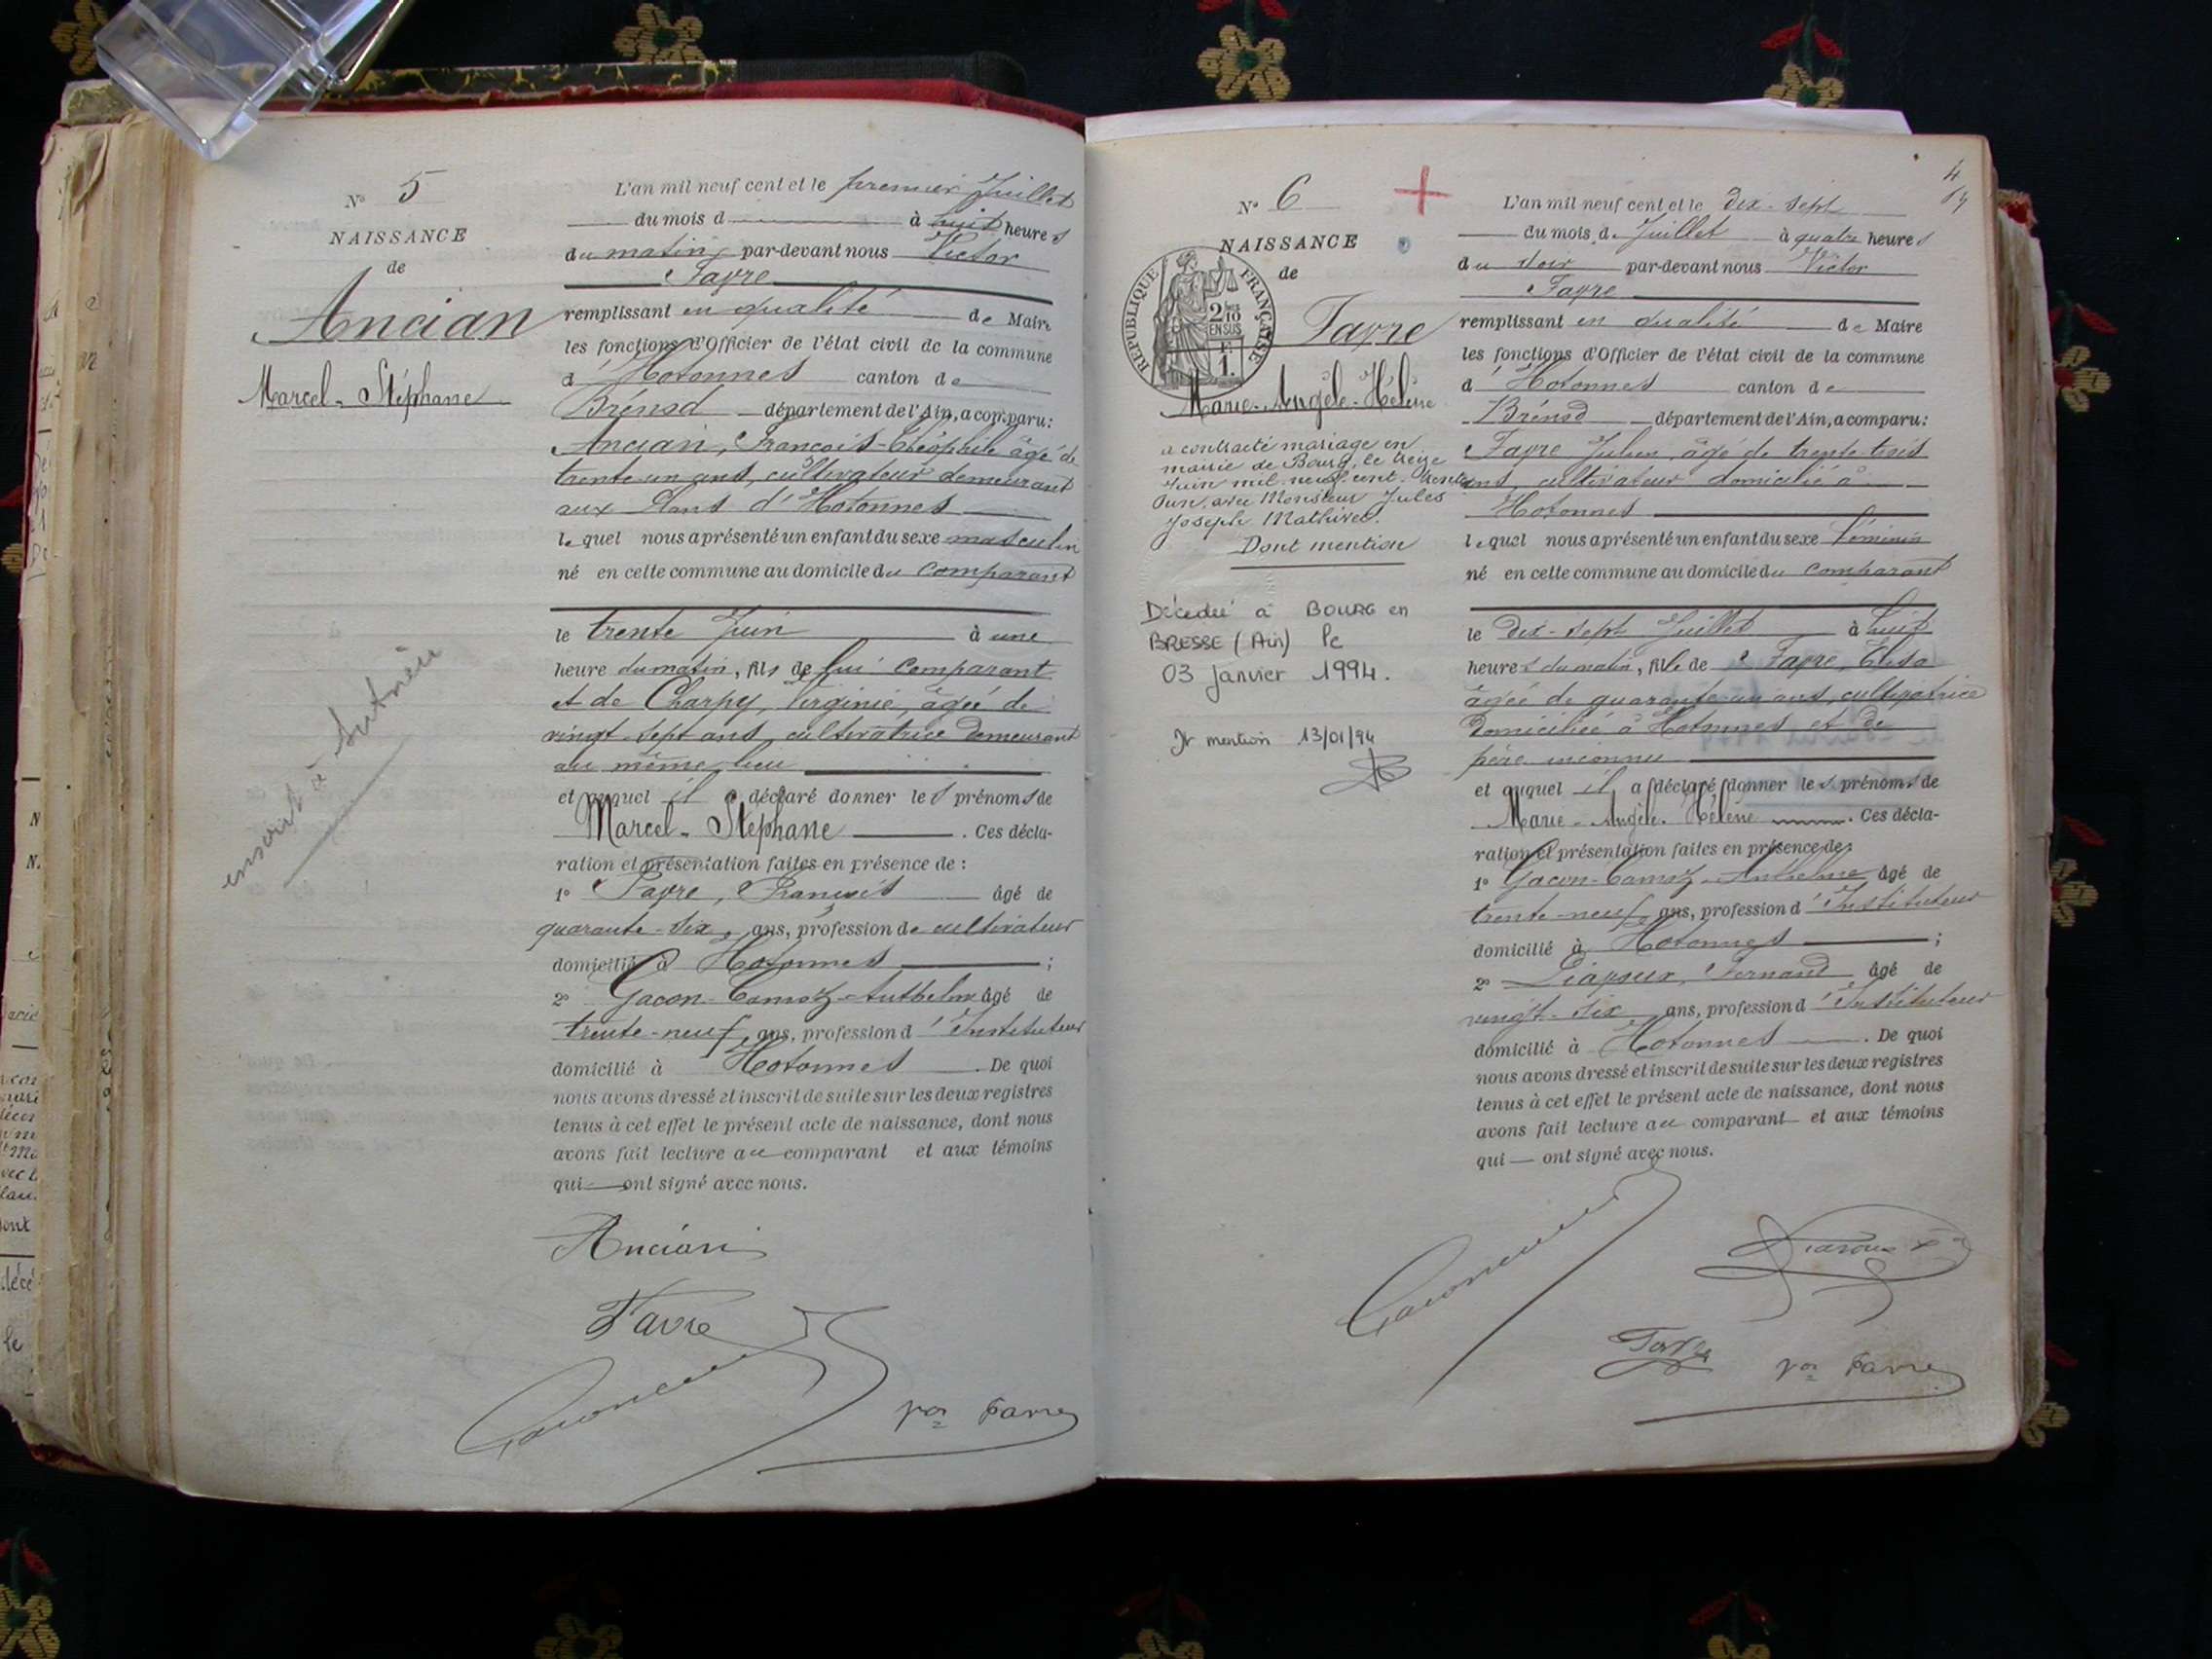 N° 5
NAISSANCE
de
Ancian
Marcel-Stéphane
inscrit à Sutrieu
L'an mil neuf cent et le premier Juillet
du mois d à huit heures
du matin par-devant nous Victor
Favre
remplissant en qualité de Maire
les fonctions d'Officier de l'état civil de la commune
d'Hotonnes canton de
Brénod département de l'Ain, a comparu:
Ancian, François-Théophile âgé de
trente un ans, cultivateur demeurant
aux Plans d'Hotonnes
lequel nous a présenté un enfant du sexe masculin
né en cette commune au domicile du comparant
le trente Juin à une
heure du matin, fils de lui comparant
et de Charpy, Virginie, âgée de
vingt-sept ans, cultivatrice demeurant
au même lieu
et auquel il a déclaré donner les prénoms de
Marcel-Stéphane. Ces décla-
ration et présentation faites en présence de :
1° Favre, François âgé de
quarante-six ans, profession de cultivateur
domicilié à Hotonnes ;
2° Gacon-Camoz-Anthelme âgé de
trente-neuf ans, profession d'Instituteur
domicilié à Hotonnes. De quoi
nous avons dressé et inscrit de suite sur les deux registres
tenus à cet effet le présent acte de naissance, dont nous
avons fait lecture au comparant et aux témoins
qui ont signé avec nous.
Ancian
Favre
Favre
4
N° 6
NAISSANCE
de
REPUBLIQUE FRANÇAISE
2/10
EN SUS
1.
Favre
Marie-Angèle-Hélène
a contracté mariage en
mairie de Bourg, le treize
Juin mil neuf cent trente
un, avec Monsieur Jules
Joseph Mathivet.
Dont mention
Décédée à BOURG en
BRESSE (Ain) le
03 Janvier 1994.
Dt mention 13/01/94
L'an mil neuf cent et le dix-sept
du mois de Juillet à quatre heures
du soir par-devant nous Victor
Favre
remplissant en qualité de Maire
les fonctions d'Officier de l'état civil de la commune
d'Hotonnes canton de
Brénod département de l'Ain, a comparu:
Favre Julien, âgé de trente-trois
ans, cultivateur domicilié à
Hotonnes
lequel nous a présenté un enfant du sexe féminin
né en cette commune au domicile du comparant
le dix-sept Juillet à huit
heures du matin, fille de Favre, Elisa
âgée de quarante un ans, cultivatrice
domiciliée à Hotonnes et de
père inconnu
et auquel il a déclaré donner les prénoms de
Marie-Angèle-Hélène. Ces décla-
ration et présentation faites en présence de:
1° Gacon-Camoz-Anthelme âgé de
trente-neuf ans, profession d'Instituteur
domicilié à Hotonnes ;
2° Fernand âgé de
vingt-six ans, profession d'Instituteur
domicilié à Hotonnes. De quoi
nous avons dressé et inscrit de suite sur les deux registres
tenus à cet effet le présent acte de naissance, dont nous
avons fait lecture au comparant et aux témoins
qui ont signé avec nous.
Favre
Favre